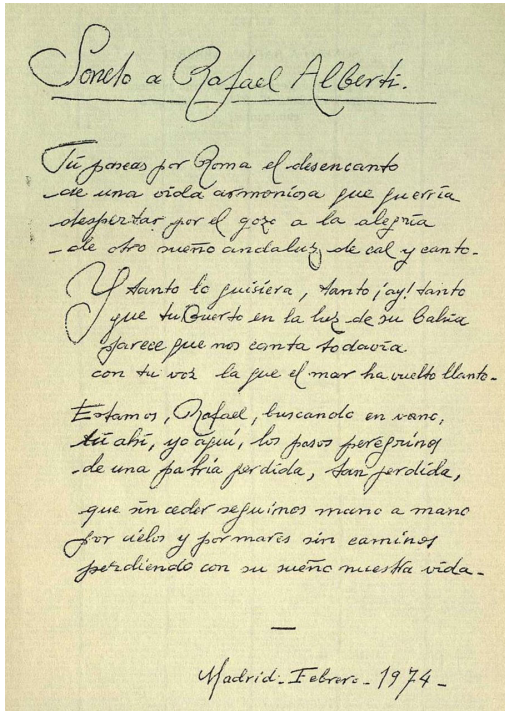 Soneto a Rafael Alberti.
Tú paseas por Roma el desencanto
de una vida armoniosa que querría
despertar por el gozo a la alegría
de otro sueño andaluz de cal y canto.
Y tanto lo quisiera, tanto ¡ay! tanto
que tu Puerto en la luz de su bahía
parece que nos canta todavía
con tu voz la que el mar ha vuelto llanto.
Estamos, Rafael, buscando en vano,
tú ahí, yo aquí, los pasos peregrinos
de una patria perdida, tan perdida,
que sin ceder seguimos mano a mano
por cielos y por mares sin caminos
perdiendo con su sueño nuestra vida.
Madrid. Febrero. 1974.